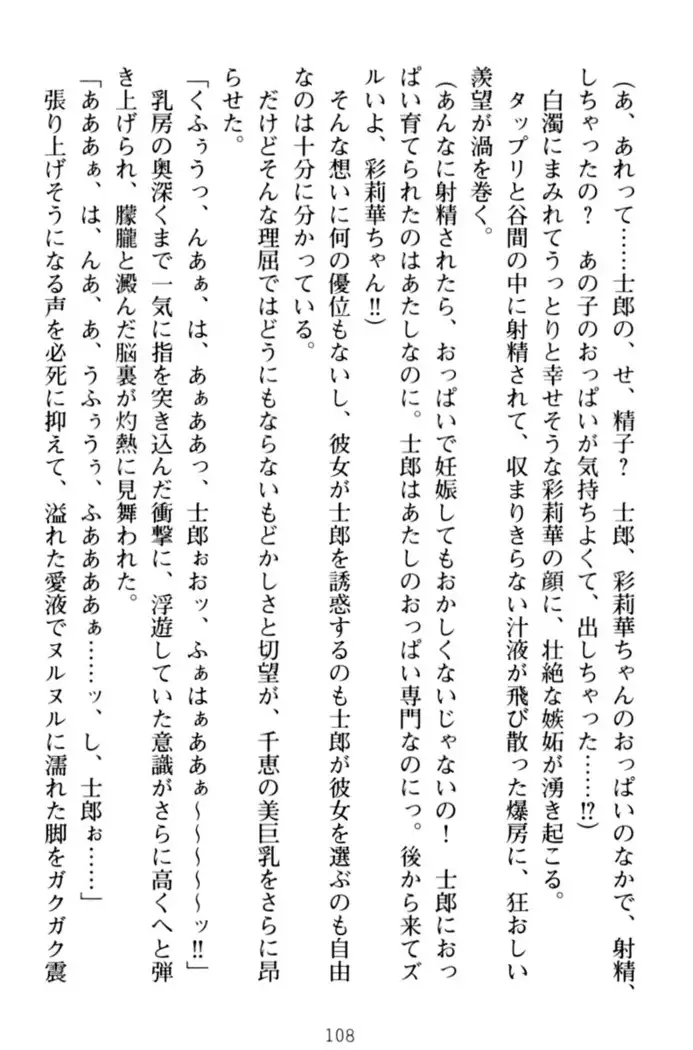 (あ、あれって……士郎の、せ、精子？　士郎、彩莉華ちゃんのおっぱいのなかで、射精、
しちゃったの？　あの子のおっぱいが気持ちよくて、出しちゃった……!?)
白濁にまみれてうっとりと幸せそうな彩莉華の顔に、壮絶な嫉妬が湧き起こる。
タップリと谷間の中に射精されて、収まりきらない汁液が飛び散った爆房に、狂おしい
羨望が渦を巻く。
(あんなに射精されたら、おっぱいで妊娠してもおかしくないじゃないの！　士郎におっ
ぱい育てられたのはあたしなのに。士郎はあたしのおっぱい専門なのにっ。後から来てズ
ルいよ、彩莉華ちゃん!!)
そんな想いに何の優位もないし、彼女が士郎を誘惑するのも士郎が彼女を選ぶのも自由
なのは十分に分かっている。
だけどそんな理屈ではどうにもならないもどかしさと切望が、千恵の美巨乳をさらに昂
らせた。
「くふぅうっ、んあぁ、は、あぁああっ、士郎ぉおッ、ふぁはぁああぁ～～～～～ッ!!」
乳房の奥深くまで一気に指を突き込んだ衝撃に、浮遊していた意識がさらに高くへと弾
き上げられ、朦朧と澱んだ脳裏が灼熱に見舞われた。
「あああぁ、は、んあ、あ、うふぅうぅ、ふああああぁ……ッ、し、士郎ぉ……」
張り上げそうになる声を必死に抑えて、溢れた愛液でヌルヌルに濡れた脚をガクガク震
108